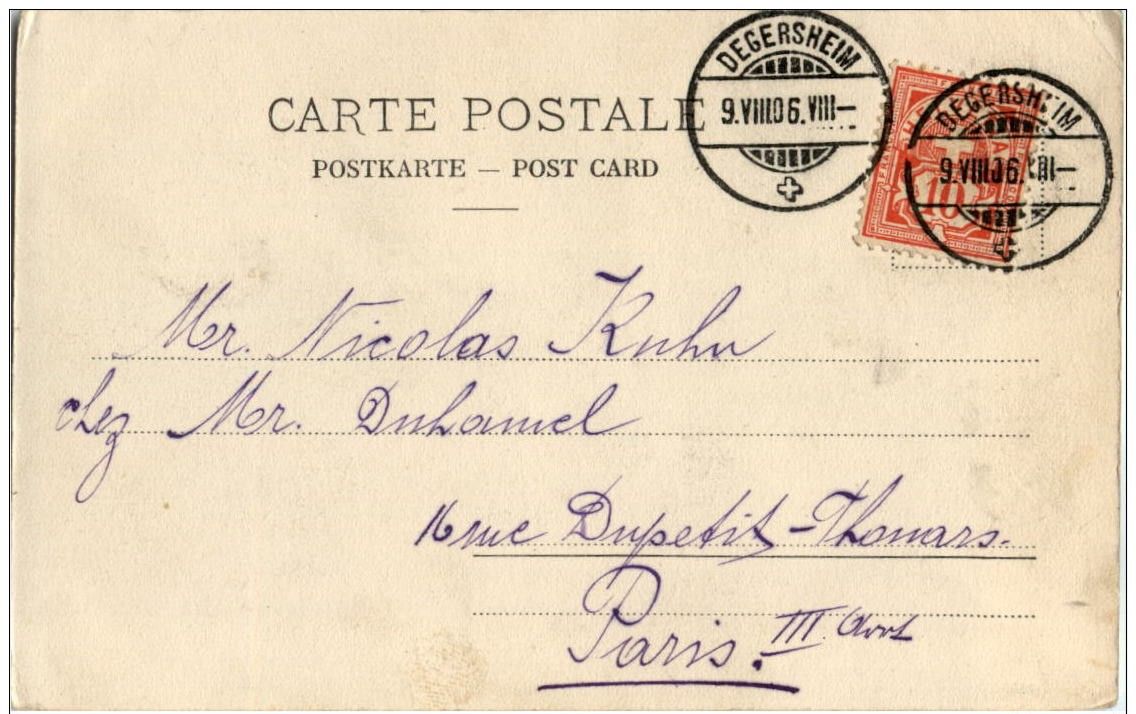 CARTE POSTALE
POSTKARTE — POST CARD
DEGERSHEIM
9.VIII.06.VIII—
DEGERSHEIM
9.VIII.06.VIII—
10
Mr. Nicolas Kuhn
chez Mr. Duhamel
16 rue Dupetit-Thouars.
Paris. III Arrt